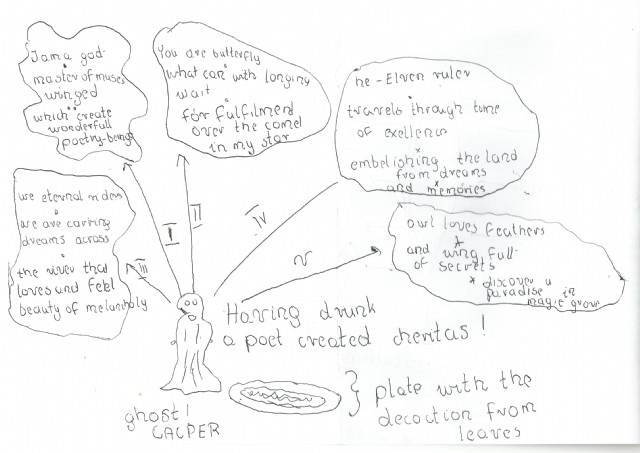 I am a god
master of muses
winged
which create
wonderfull
poetry-beings
You are butterfly
what can with longing
wait
for fulfilment
over the comet
in my star
he-Elven ruler
travels through time
of exellence
embelishing the land
from dreams
and memories
we eternal riders
we are carring
dreams across
the river that
loves and feel
beauty of melancholy
owl loves feathers
and wing full
of secrets
* discover a
paradise in
magic grove
I
II
III
IV
V
Having drunk
a poet created cheritas!
ghost!
CACPER
plate with the
decoction from
leaves